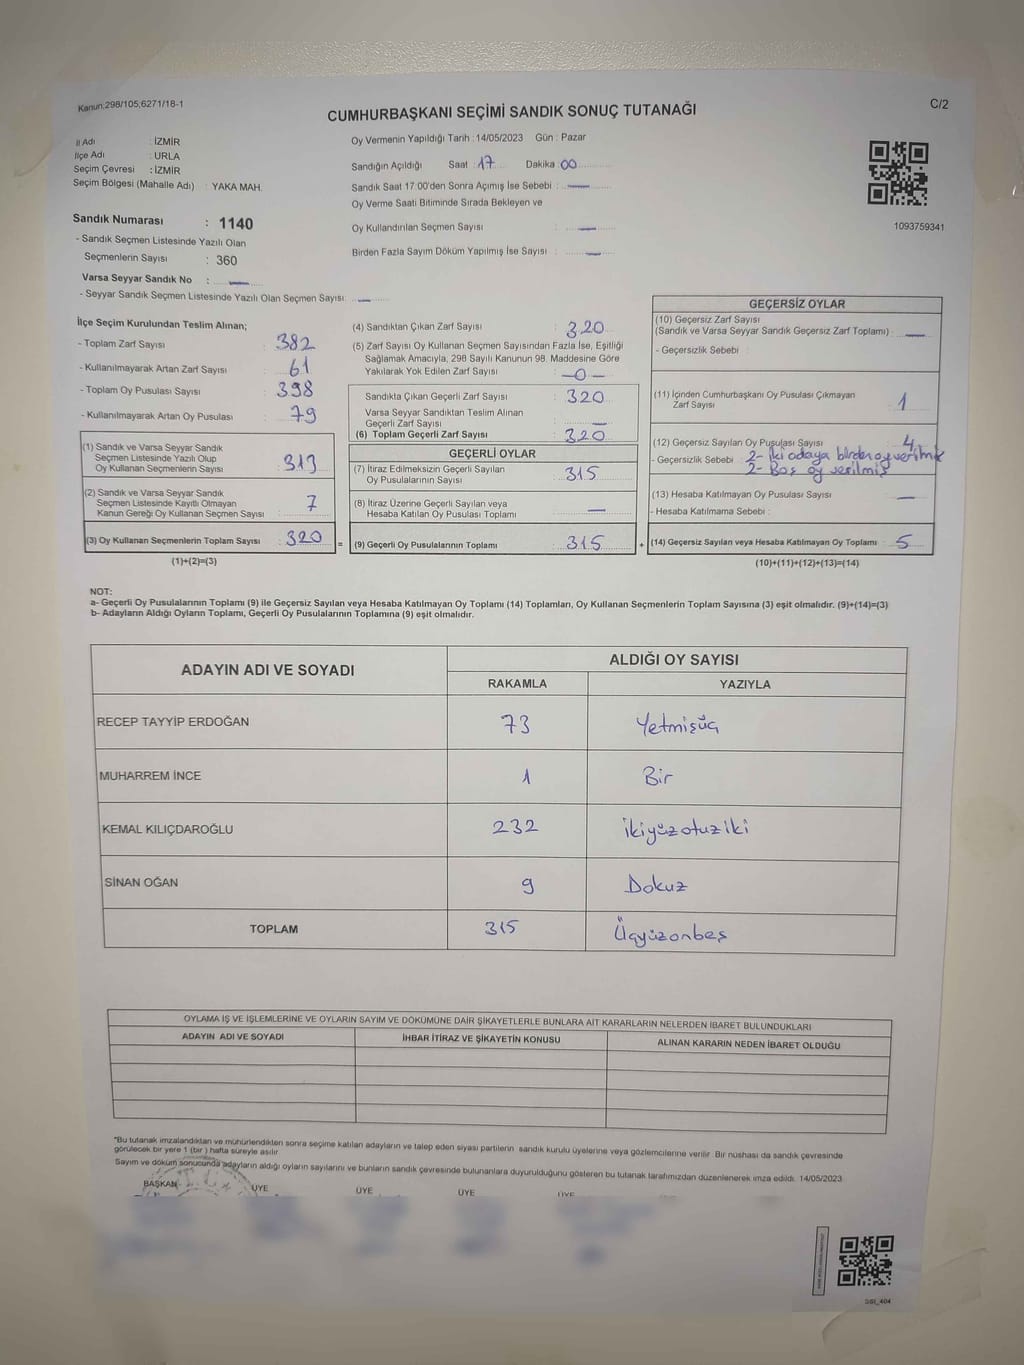 Kanun:298/105,6271/18-1
C/2
CUMHURBAŞKANI SEÇİMİ SANDIK SONUÇ TUTANAĞI
İl Adı : İZMİR
İlçe Adı : URLA
Seçim Çevresi : İZMİR
Seçim Bölgesi (Mahalle Adı) : YAKA MAH.
Sandık Numarası : 1140
- Sandık Seçmen Listesinde Yazılı Olan
Seçmenlerin Sayısı : 360
Varsa Seyyar Sandık No : —
- Seyyar Sandık Seçmen Listesinde Yazılı Olan Seçmen Sayısı: —
Oy Vermenin Yapıldığı Tarih : 14/05/2023 Gün : Pazar
Sandığın Açıldığı Saat : 17 Dakika : 00
Sandık Saat 17:00'den Sonra Açımış İse Sebebi : —
Oy Verme Saati Bitiminde Sırada Bekleyen ve
Oy Kullandırılan Seçmen Sayısı : —
Birden Fazla Sayım Döküm Yapılmış İse Sayısı : —
1093759341
İlçe Seçim Kurulundan Teslim Alınan;
- Toplam Zarf Sayısı : 382
- Kullanılmayarak Artan Zarf Sayısı : 61
- Toplam Oy Pusulası Sayısı : 398
- Kullanılmayarak Artan Oy Pusulası : 79
(1) Sandık ve Varsa Seyyar Sandık
Seçmen Listesinde Yazılı Olup
Oy Kullanan Seçmenlerin Sayısı : 313
(2) Sandık ve Varsa Seyyar Sandık
Seçmen Listesinde Kayıtlı Olmayan
Kanun Gereği Oy Kullanan Seçmen Sayısı : 7
(3) Oy Kullanan Seçmenlerin Toplam Sayısı : 320 =
(1)+(2)=(3)
(4) Sandıktan Çıkan Zarf Sayısı : 320
(5) Zarf Sayısı Oy Kullanan Seçmen Sayısından Fazla İse, Eşitliği
Sağlamak Amacıyla, 298 Sayılı Kanunun 98. Maddesine Göre
Yakılarak Yok Edilen Zarf Sayısı : —0—
Sandıkta Çıkan Geçerli Zarf Sayısı : 320
Varsa Seyyar Sandıktan Teslim Alınan
Geçerli Zarf Sayısı : —
(6) Toplam Geçerli Zarf Sayısı : 320
GEÇERLİ OYLAR
(7) İtiraz Edilmeksizin Geçerli Sayılan
Oy Pusulalarının Sayısı : 315
(8) İtiraz Üzerine Geçerli Sayılan veya
Hesaba Katılan Oy Pusulası Toplamı : —
(9) Geçerli Oy Pusulalarının Toplamı : 315 +
GEÇERSİZ OYLAR
(10) Geçersiz Zarf Sayısı
(Sandık ve Varsa Seyyar Sandık Geçersiz Zarf Toplamı) : —
- Geçersizlik Sebebi :
(11) İçinden Cumhurbaşkanı Oy Pusulası Çıkmayan
Zarf Sayısı : 1
(12) Geçersiz Sayılan Oy Pusulası Sayısı : 4
- Geçersizlik Sebebi : 2- İki adaya birden oy verilmiş
2- Boş oy verilmiş
(13) Hesaba Katılmayan Oy Pusulası Sayısı : —
- Hesaba Katılmama Sebebi :
(14) Geçersiz Sayılan veya Hesaba Katılmayan Oy Toplamı : 5
(10)+(11)+(12)+(13)=(14)
NOT:
a- Geçerli Oy Pusulalarının Toplamı (9) ile Geçersiz Sayılan veya Hesaba Katılmayan Oy Toplamı (14) Toplamları, Oy Kullanan Seçmenlerin Toplam Sayısına (3) eşit olmalıdır. (9)+(14)=(3)
b- Adayların Aldığı Oyların Toplamı, Geçerli Oy Pusulalarının Toplamına (9) eşit olmalıdır.
ADAYIN ADI VE SOYADI ALDIĞI OY SAYISI
RAKAMLA YAZIYLA
RECEP TAYYİP ERDOĞAN 73 Yetmişüç
MUHARREM İNCE 1 Bir
KEMAL KILIÇDAROĞLU 232 ikiyüzotuziki
SİNAN OĞAN 9 Dokuz
TOPLAM 315 Üçyüzonbeş
OYLAMA İŞ VE İŞLEMLERİNE VE OYLARIN SAYIM VE DÖKÜMÜNE DAİR ŞİKAYETLERLE BUNLARA AİT KARARLARIN NELERDEN İBARET BULUNDUKLARI
ADAYIN ADI VE SOYADI İHBAR İTİRAZ VE ŞİKAYETİN KONUSU ALINAN KARARIN NEDEN İBARET OLDUĞU
*Bu tutanak imzalandıktan ve mühürlendikten sonra seçime katılan adayların ve talep eden siyasi partilerin sandık kurulu üyelerine veya gözlemcilerine verilir. Bir nüshası da sandık çevresinde
görülecek bir yere 1 (bir ) hafta süreyle asılır.
Sayım ve döküm sonucunda adayların aldığı oyların sayılarını ve bunların sandık çevresinde bulunanlara duyurulduğunu gösteren bu tutanak tarafımızdan düzenlenerek imza edildi. 14/05/2023
BAŞKAN ÜYE ÜYE ÜYE ÜYE